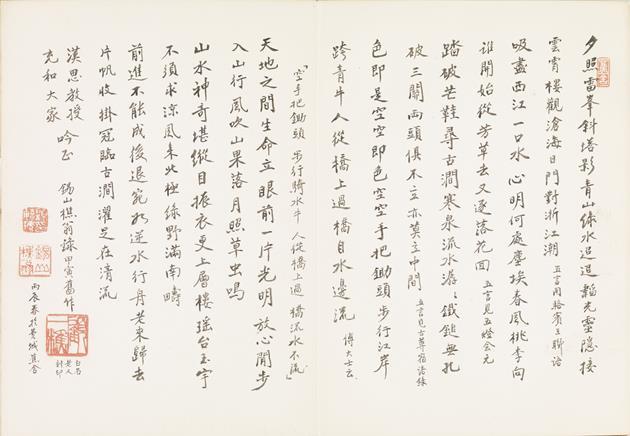 夕照雷峯斜塔影青山綠水迢迢韜光靈隱接
雲霄樓觀滄海日門對浙江潮 五言用駱賓王聯語
吸盡西江一口水心明何處塵埃春風桃李向
誰開始從芳草去又逐落花回 五言見五燈會元
踏破芒鞋尋古澗寒泉流水潺〻鐵鎚無孔
破三關兩頭俱不立亦莫立中間 五言見古尊宿語錄
色即是空空即色空空手把鋤頭步行江岸
跨青牛人從橋上過橋自水邊流 傅大士云
「空手把鋤頭 步行騎水牛 人從橋上過 橋流水不流」
天地之間生命立眼前一片光明放心閒步
入山行風吹山果落月照草虫鳴
山水神奇堪縱目振衣更上層樓瑤台玉宇
不須求涼風來北極綠野滿南疇
前進不能成後退宛如逆水行舟東歸去
片帆收掛冠臨古澗濯足在清流
漢思教授 吟正
充和大家
錫山樵翁錄甲寅舊作
丙辰春於費城蕉舍
白石老人刻印